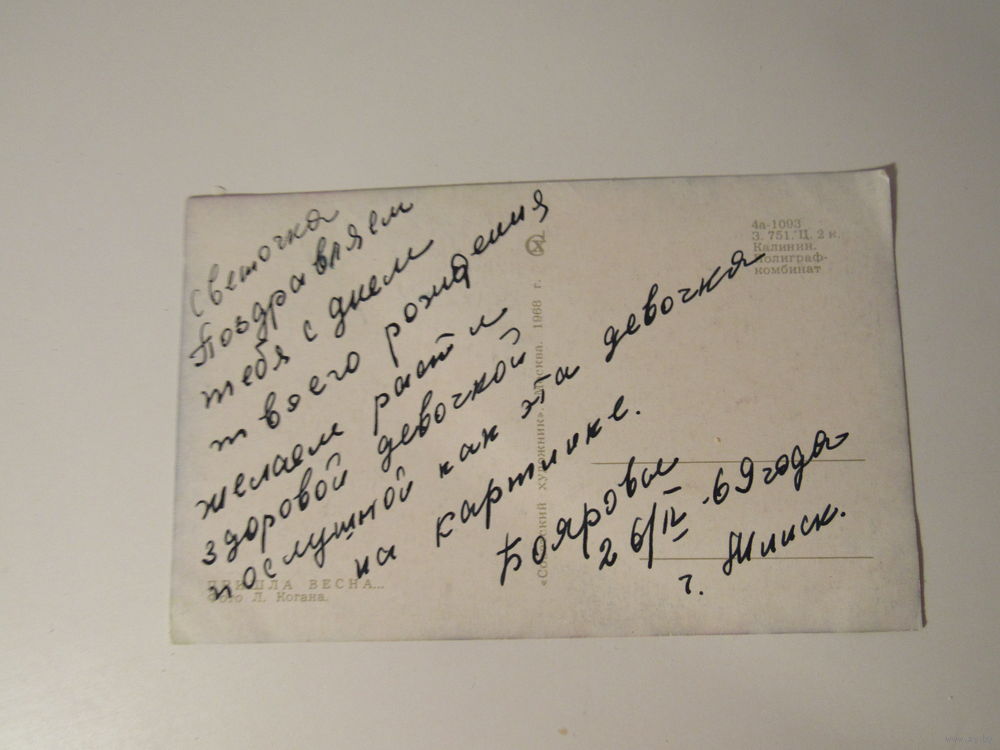 Светочка
Поздравляем
тебя с днем
твоего рождения
желаем расти
здоровой девочкой
послушной как эта девочка
на картинке.
Бояровы
26/IV.69 года
г. Минск.
4а-1093
З. 751. Ц. 2 к.
Калинин.
Полиграф-
комбинат
«Советский художник». Москва. 1968 г.
ПРИШЛА ВЕСНА...
Фото Л. Когана.